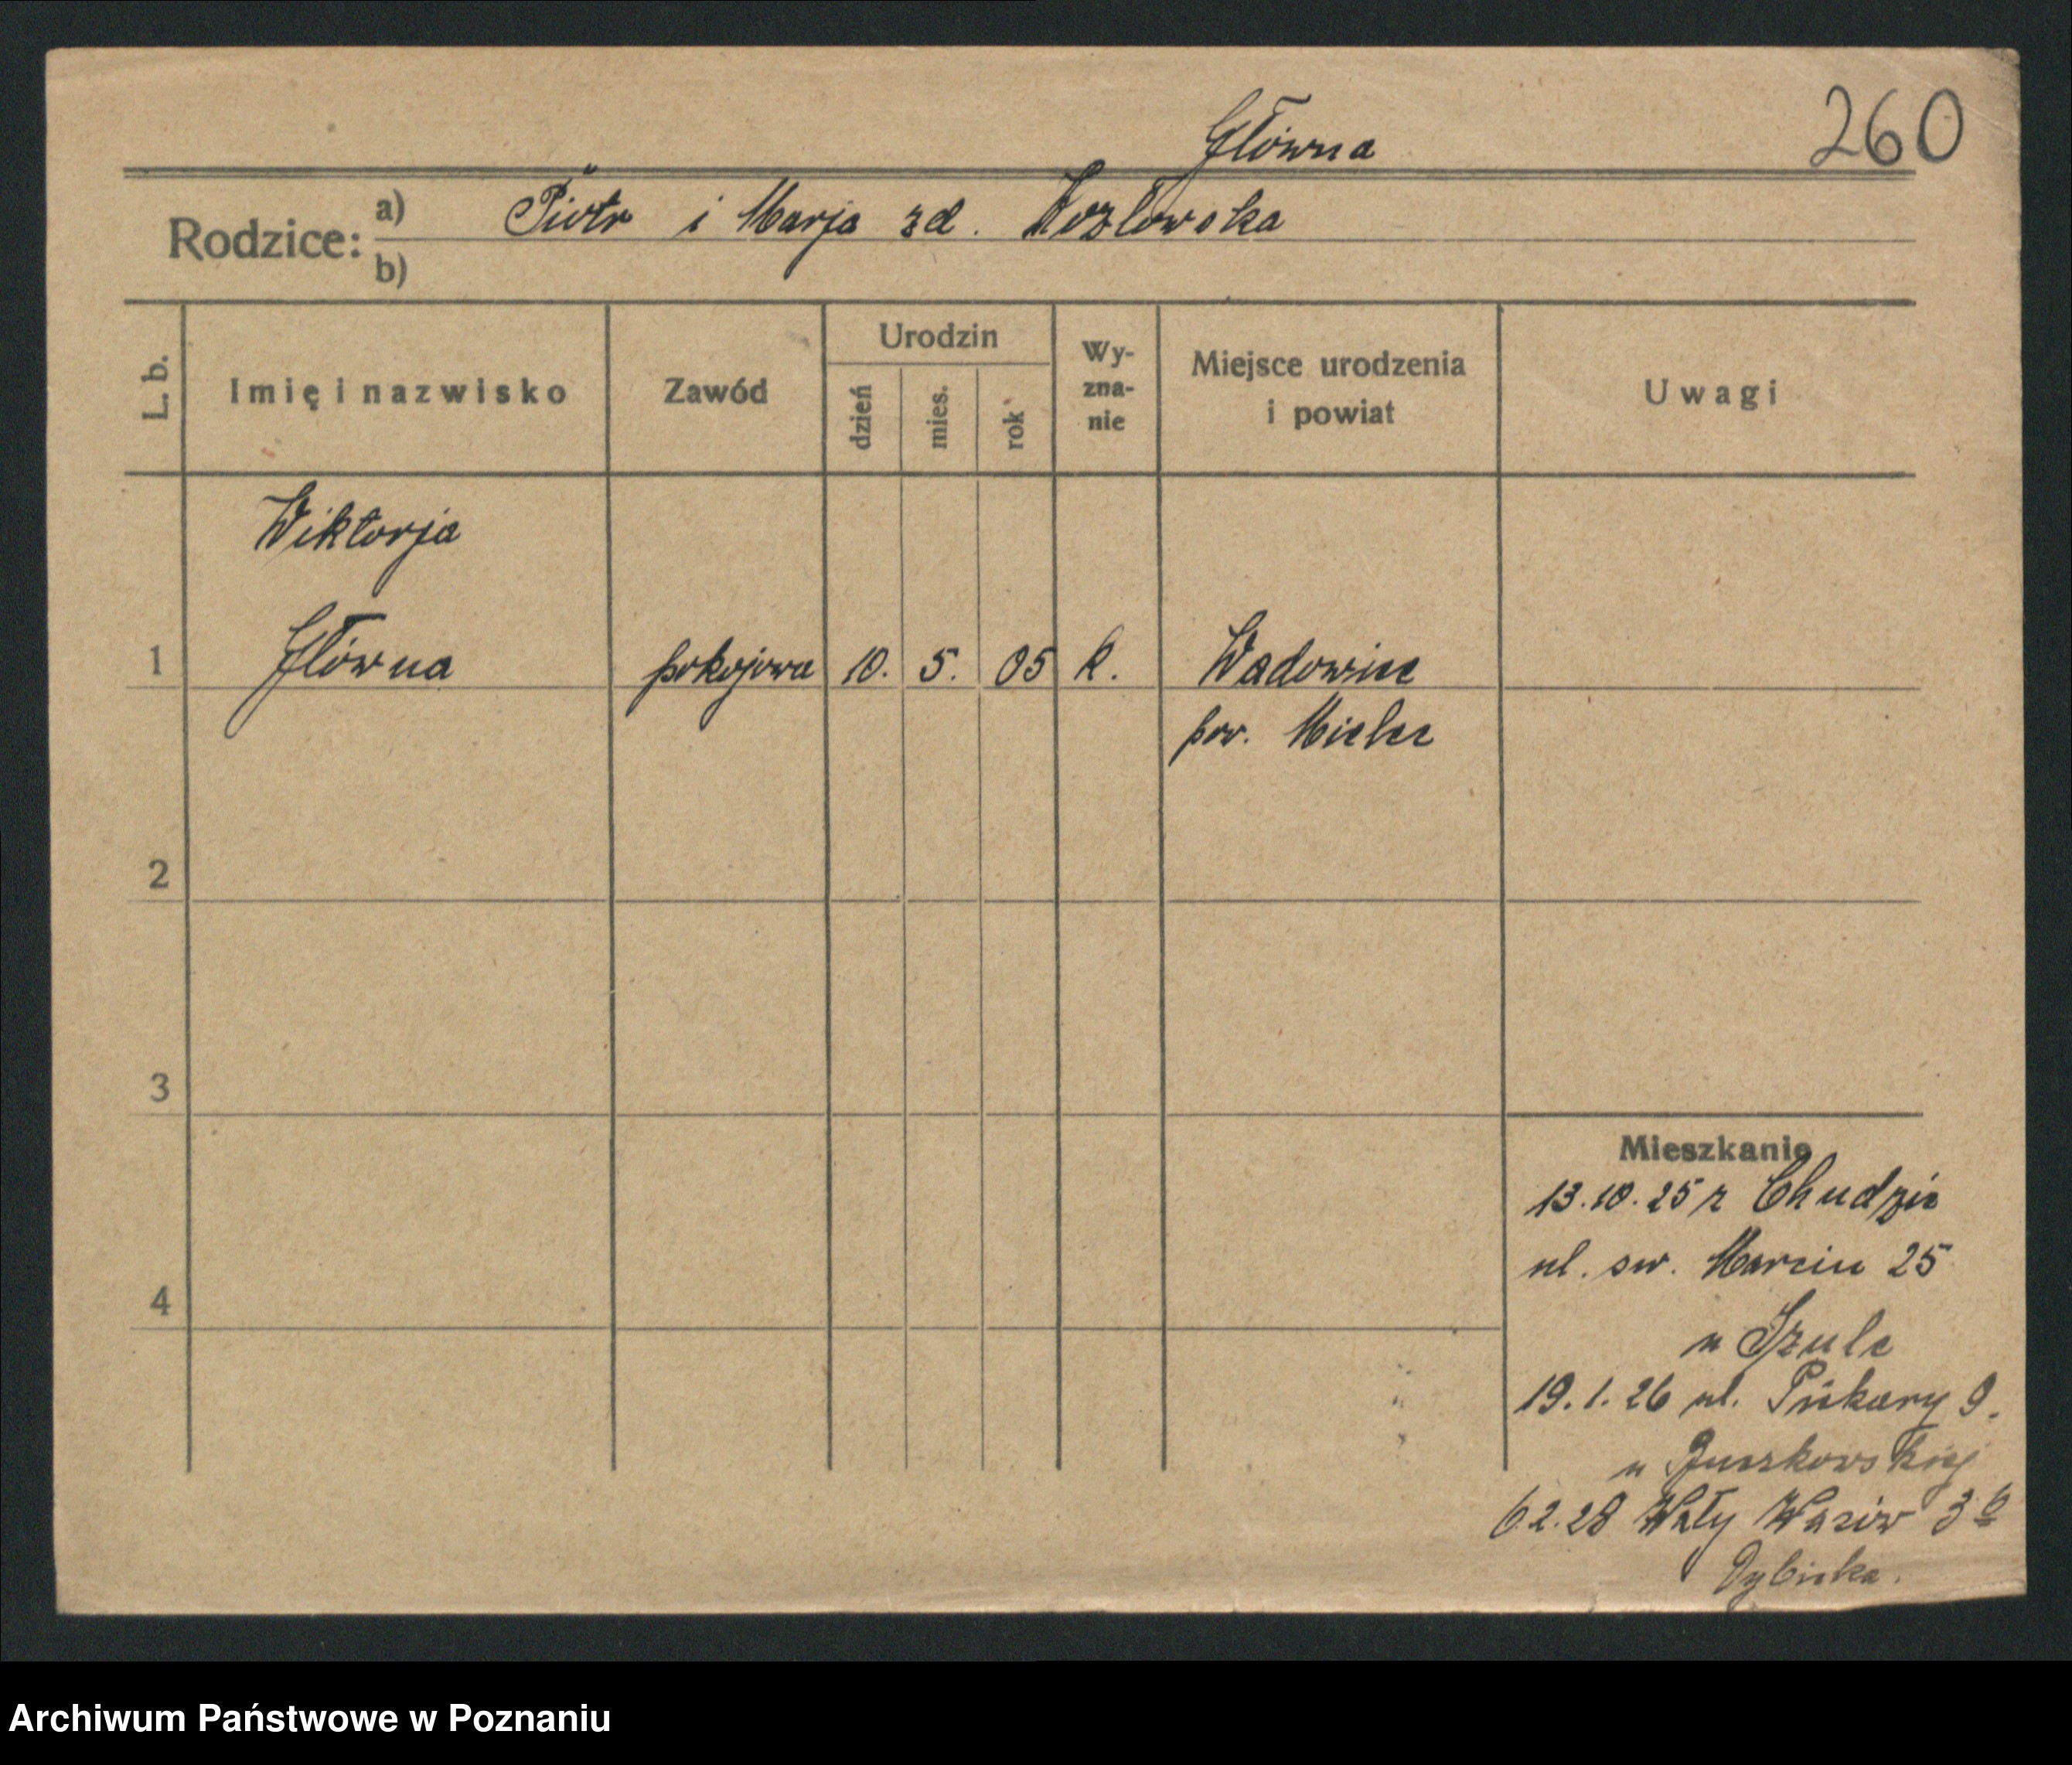 260
Główna
Rodzice: a) Piotr i Marja zd. Kozłowska
b)
L. b. Imię i nazwisko Zawód Urodzin dzień mies. rok Wy-zna-nie Miejsce urodzenia i powiat Uwagi
Wiktorja
1 Główna pokojowa 10. 5. 05 k. Wadowice
pow. Mielec
2
3
Mieszkanie
13.10.25 z Chudzic
ul. sw. Marcin 25
4
u Szulc
19.1.26 ul. Piekary 9.
u
6.2.28 Wały Wazów 3
Archiwum Państwowe w Poznaniu